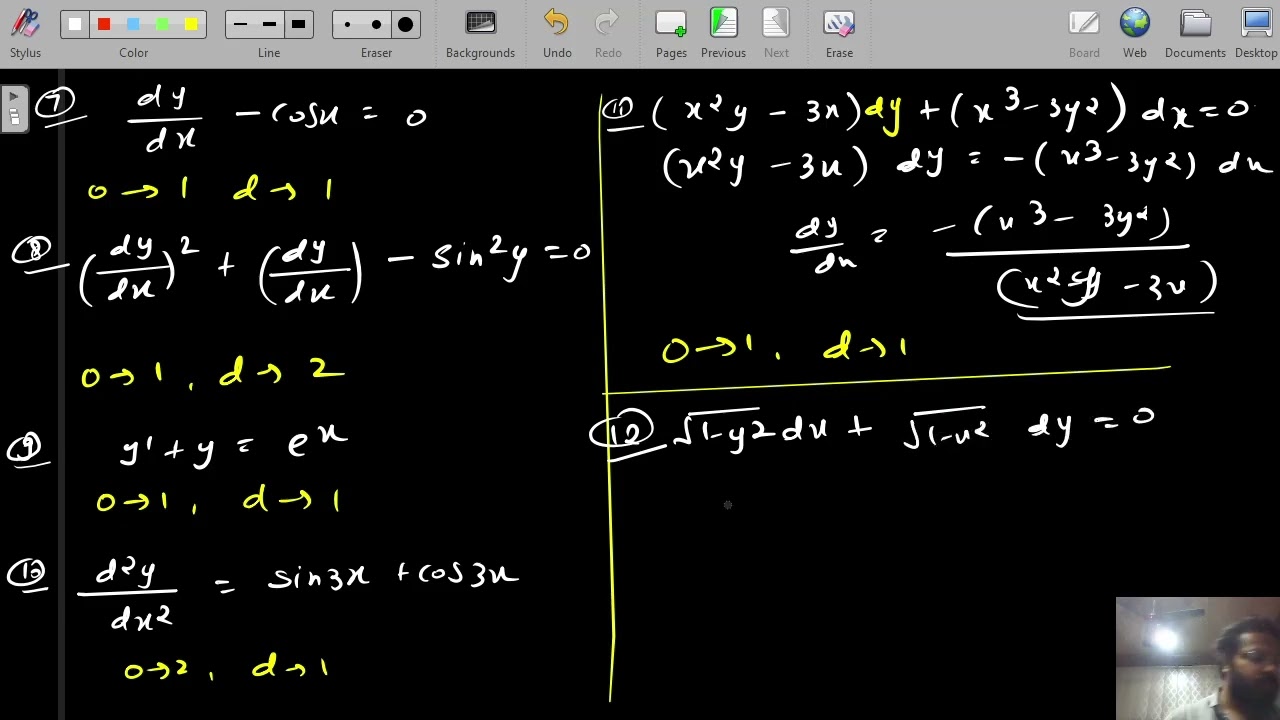 Stylus Color Line Eraser Backgrounds Undo Redo Pages Previous Next Erase Board Web Documents Desktop
⑦ dy/dx - cosx = 0
0→1 d→1
⑧ (dy/dx)² + (dy/dx) - sin²y = 0
0→1, d→2
⑨ y' + y = eˣ
0→1, d→1
⑩ d²y/dx² = sin3x + cos3x
0→2, d→1
⑪ (x²y - 3x)dy + (x³ - 3y²) dx = 0
(x²y - 3x) dy = -(x³ - 3y²) dx
dy/dx = -(x³ - 3y²)/(x²y - 3x)
0→1, d→1
⑫ √1-y² dx + √1-x² dy = 0